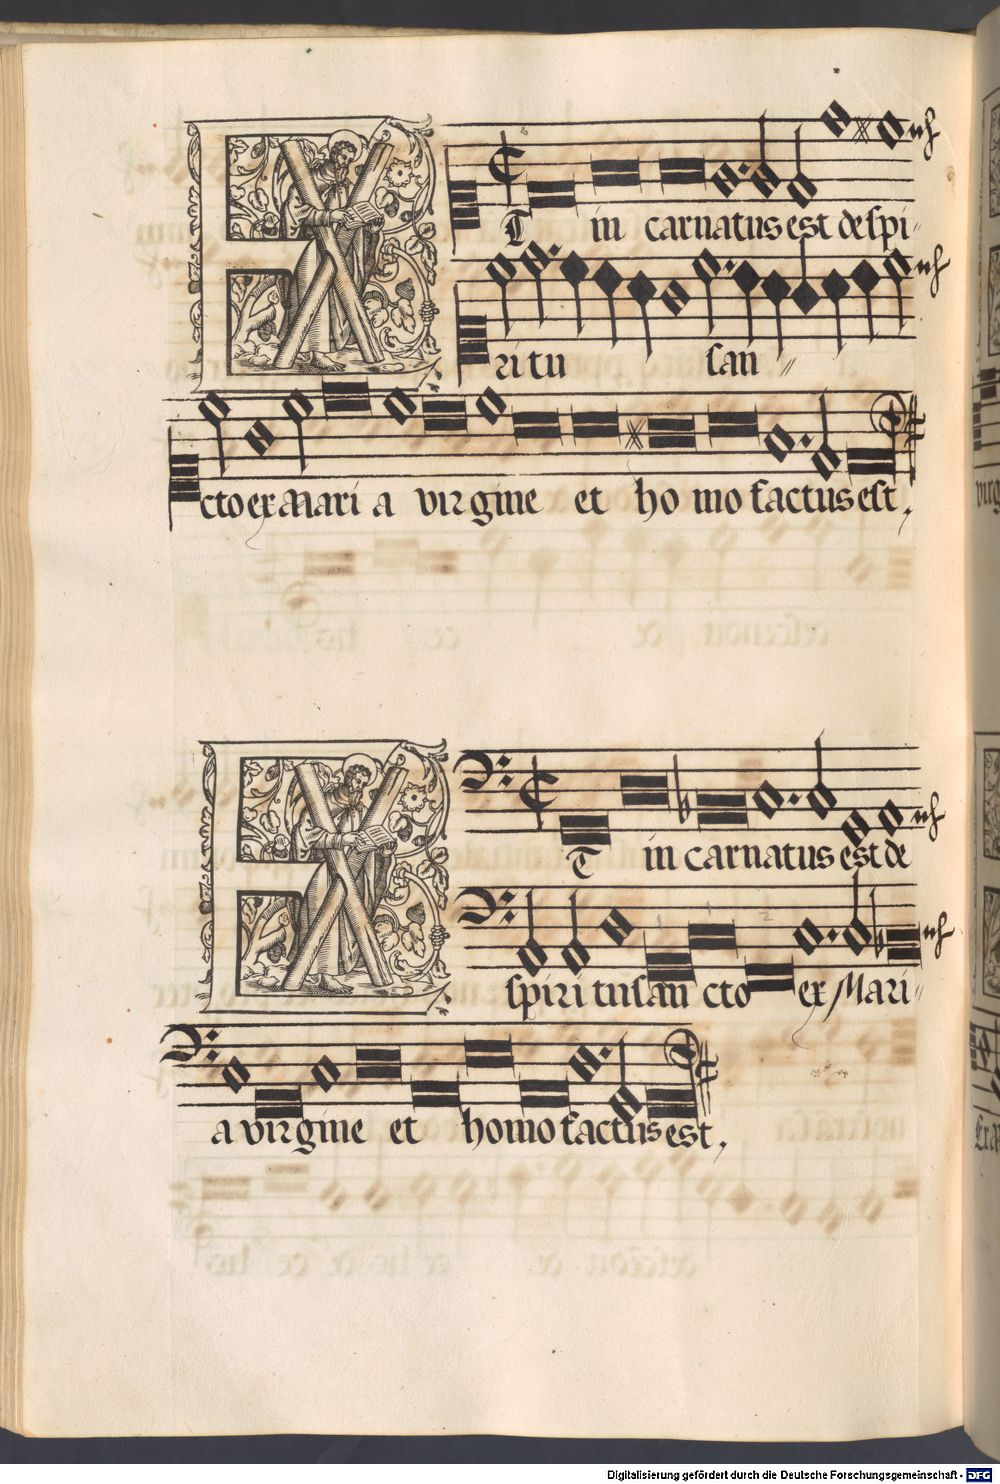 ET in carnatus est de spi〃
ritu san〃
cto ex Mari a virgine et ho mo factus est,
ET in carnatus est de
spiritu san cto ex Mari〃
a virgine et homo factus est,
Digitalisierung gefördert durch die Deutsche Forschungsgemeinschaft - DFG